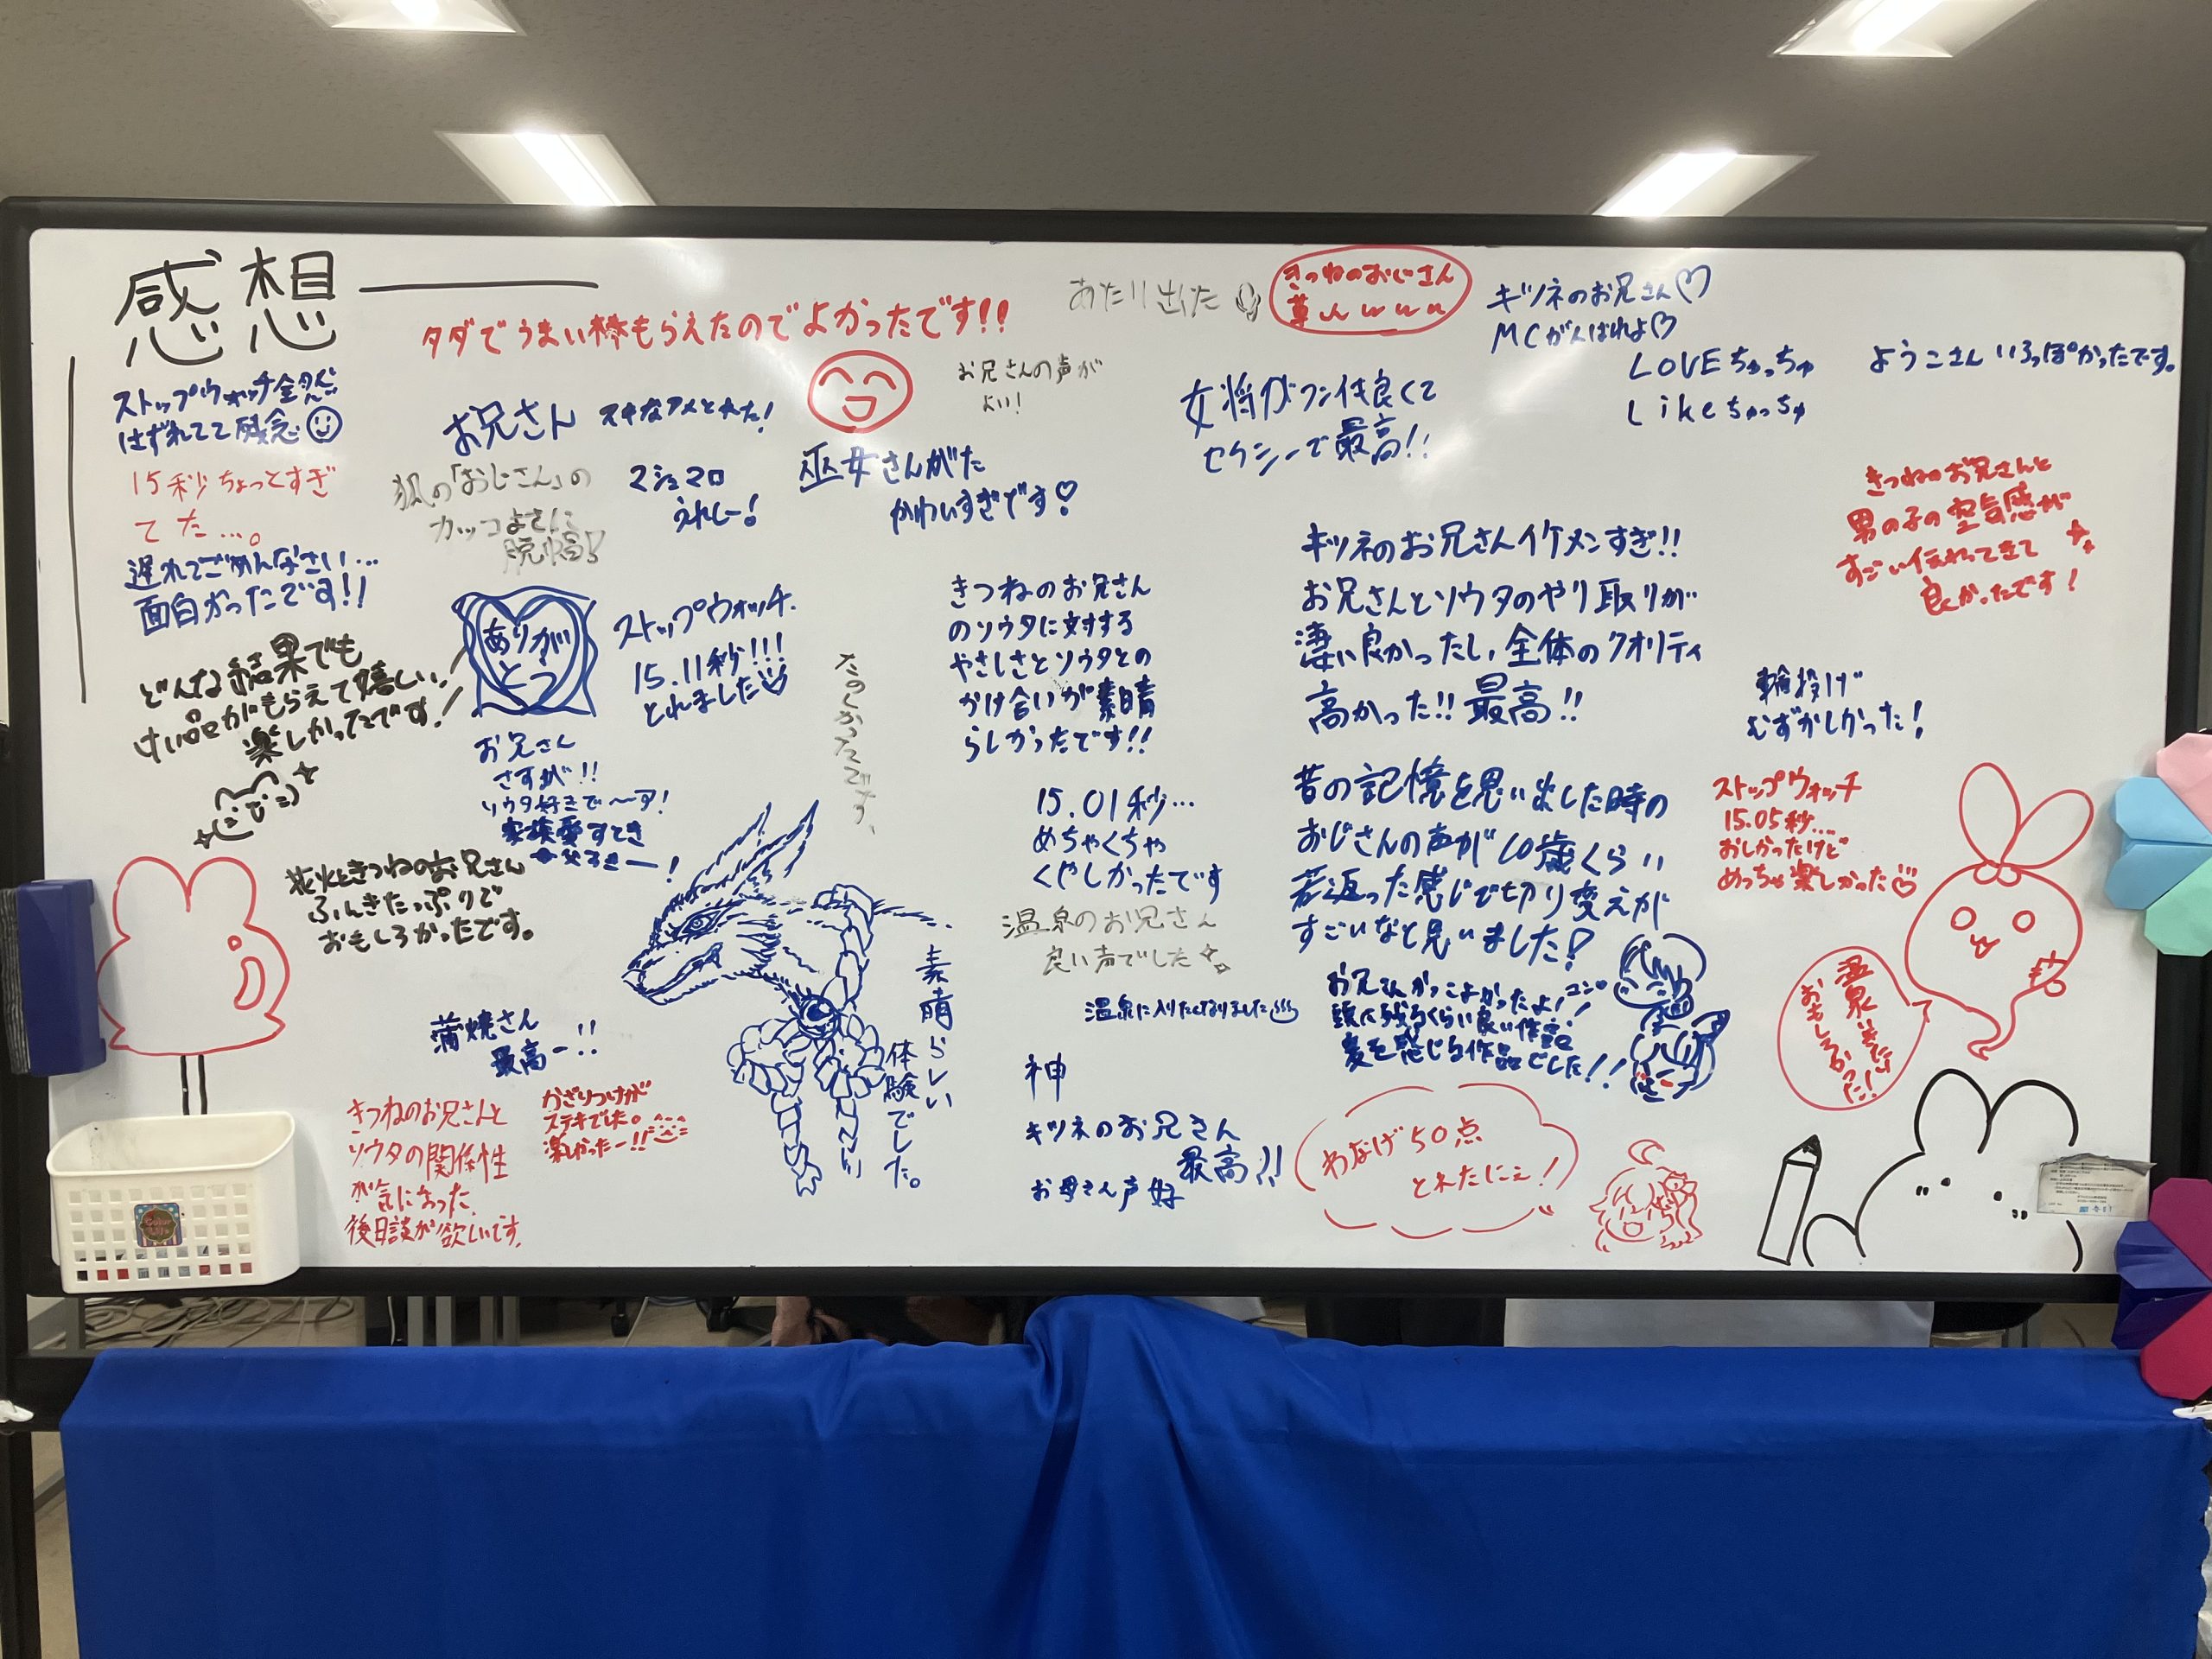 感想
タダでうまい棒もらえたのでよかったです!!
あたり出た
きつねのおじさん
草んwww
キツネのお兄さん♡
MCがんばれよ♡
LOVEちゅっちゅ
Likeちゅっちゅ
ようこさんいろっぽかったです。
ストップウォッチ全然
はずれてて残念
お兄さん
スキなアメとれた!
お兄さんの声が
よい!
女将がフンイキ良くて
セクシーで最高!!
15秒ちょっとすぎ
てた…。
狐の「おじさん」の
カッコよさに
脱帽!
マシュマロ
うれしー!
巫女さんがた
かわいすぎです♡
きつねのお兄さんと
男の子の空気感が
すごい伝わってきて
良かったです!
遅れてごめんなさい…
面白かったです!!
ありが
とう
ストップウォッチ.
15.11秒!!!
とれました
たのしかったです、
きつねのお兄さん
のソウタに対する
やさしさとソウタとの
かけ合いが素晴
らしかったです!!
キツネのお兄さんイケメンすぎ!!
お兄さんとソウタのやり取りが
凄い良かったし、全体のクオリティ
高かった!! 最高!!
どんな結果でも
けい品がもらえて嬉しい!
楽しかったです!
輪投げ
むずかしかった!
お兄さん
さすが!!
ソウタ好きで〜す!
家族愛すてき
15.01秒…
めちゃくちゃ
くやしかったです
昔の記憶を思い出した時の
おじさんの声が10歳くらい
若返った感じで切り変えが
すごいなと思いました!
ストップウォッチ
15.05秒…
おしかったけど
めっちゃ楽しかった
花火ときつねのお兄さん
ふんきたっぷりで
おもしろかったです。
温泉のお兄さん
良い声でした
素晴らしい
体験でした。
温泉に入りたくなりました
お兄さんかっこよかったよ!
コンっ
頭に残るくらい良い作品!
夏を感じる作品でした!!
温泉
おもしろかった!
蒲焼さん
最高ー!!
神
キツネのお兄さん
最高!!
お母さん声好
きつねのお兄さんと
ソウタの関係性
が気になった
後日談が欲しいです.
かざりつけが
ステキでした。
楽しかったー!!
わなげ50点
とれたにぇ!